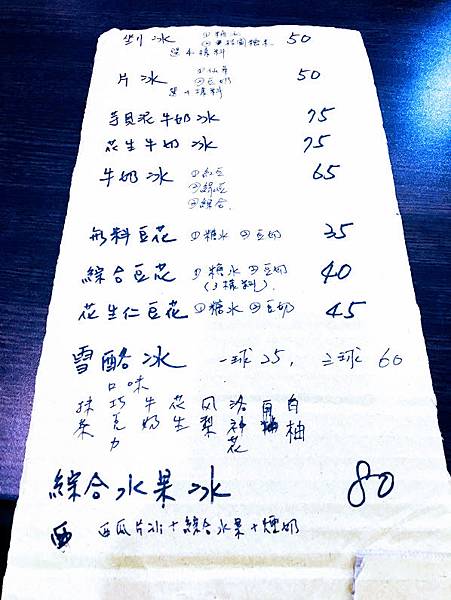 剉冰 ①糖水 50
②桂圓糖水
選4樣料
片冰 ①仙草 50
②豆奶
選4樣料
芋泥牛奶冰 75
花生牛奶冰 75
牛奶冰 ①紅豆 65
②綠豆
③綜合
無料豆花 ①糖水 ②豆奶 35
綜合豆花 ①糖水 ②豆奶 40
(3樣料)
花生仁豆花 ①糖水 ②豆奶 45
雪酪冰 一球25, 三球60
口味
抹茶 巧克力 牛奶 花生 鳳梨 洛神花 白柚
綜合水果冰 80
西瓜片冰+綜合水果+煙奶